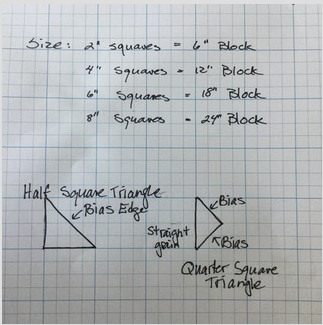 Size: 2" squares = 6" Block
4" Squares = 12" Block
6" Squares = 18" Block
8" Squares = 24" Block
Half Square Triangle
Bias Edge
Bias
Straight
grain
Bias
Quarter Square
Triangle